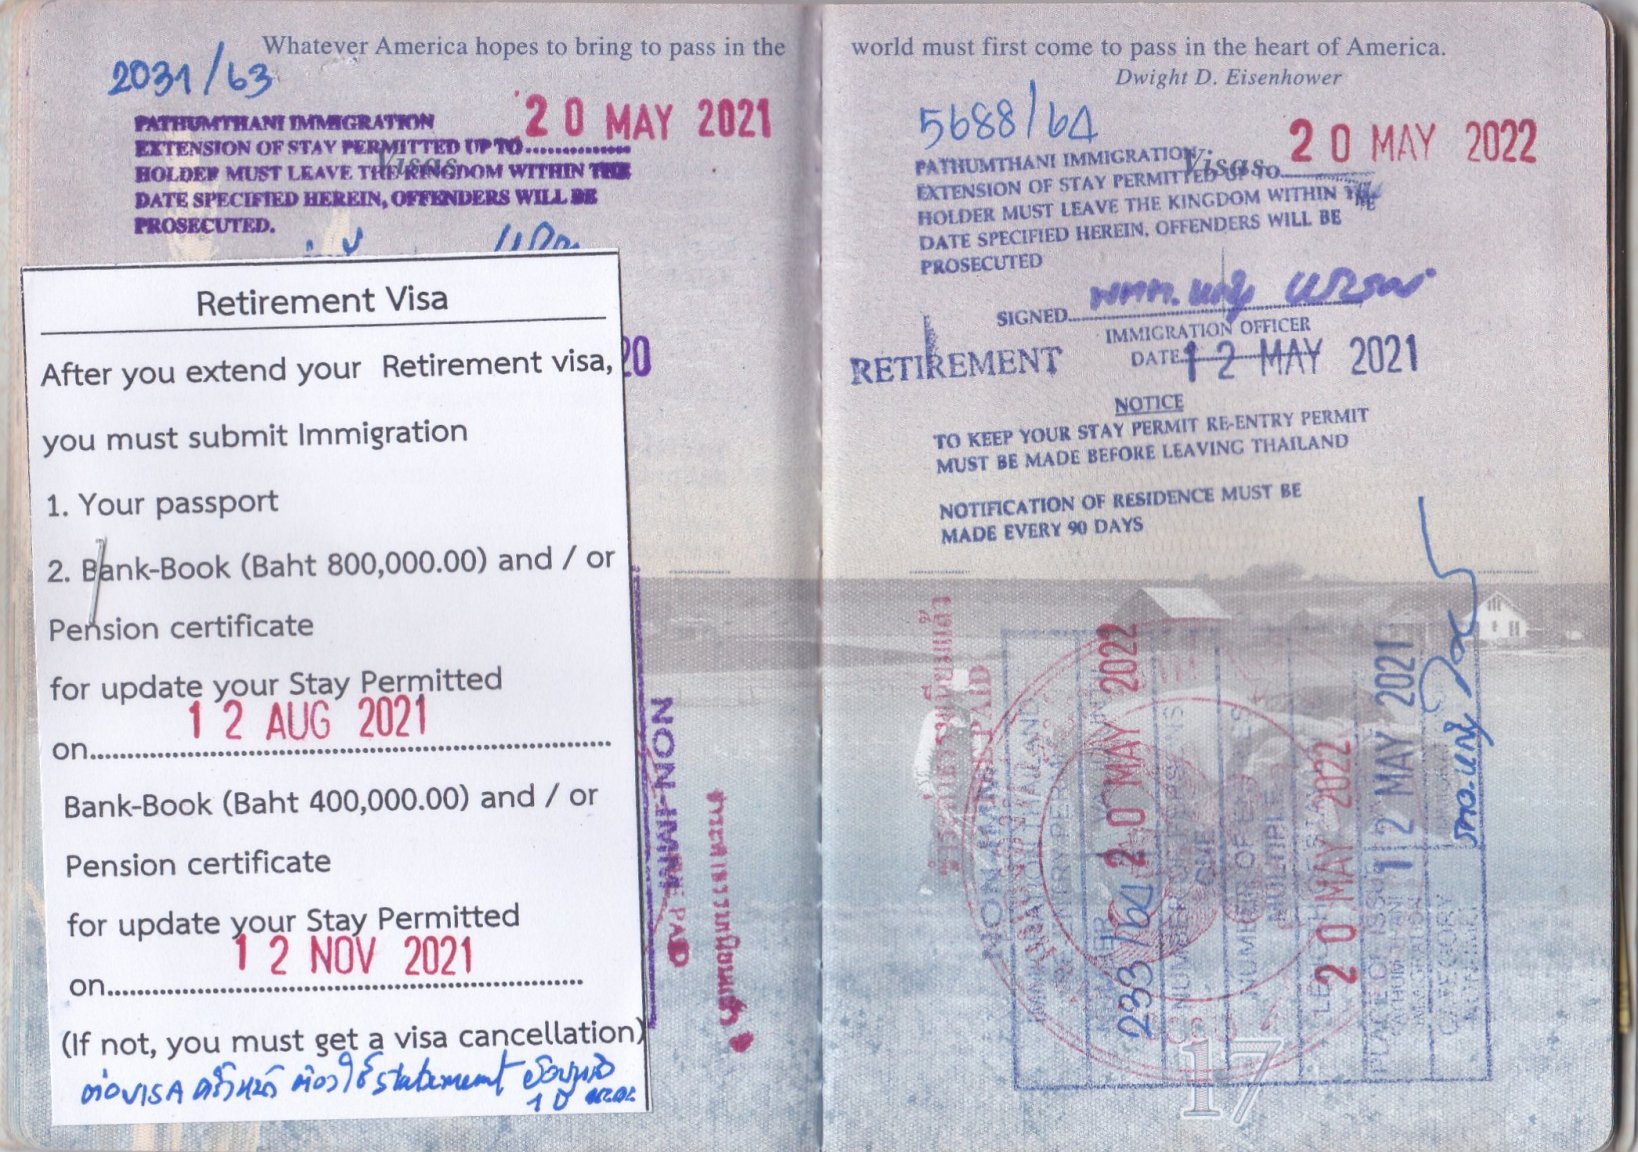 Whatever America hopes to bring to pass in the
2031/63
20 MAY 2021
PATHUMTHANI IMMIGRATION
EXTENSION OF STAY PERMITTED UP TO
HOLDER MUST LEAVE THE KINGDOM WITHIN THE
Visas
DATE SPECIFIED HEREIN, OFFENDERS WILL BE
PROSECUTED.
Retirement Visa
After you extend your Retirement visa,
20
you must submit Immigration
1. Your passport
2. Bank-Book (Baht 800,000.00) and / or
Pension certificate
for update your Stay Permitted
12 AUG 2021
on
Bank-Book (Baht 400,000.00) and / or
Pension certificate
for update your Stay Permitted
12 NOV 2021
on
(If not, you must get a visa cancellation)
ต่อVISA ครั้งหน้า ต้องใช้ statement ย้อนหลัง
1 ปี
NON-IMM
PAID
world must first come to pass in the heart of America.
Dwight D. Eisenhower
5688/64
20 MAY 2022
PATHUMTHANI IMMIGRATION
Visas
EXTENSION OF STAY PERMITTED UP TO
HOLDER MUST LEAVE THE KINGDOM WITHIN THE
DATE SPECIFIED HEREIN, OFFENDERS WILL BE
PROSECUTED
SIGNED
IMMIGRATION OFFICER
RETIREMENT
DATE 12 MAY 2021
NOTICE
TO KEEP YOUR STAY PERMIT RE-ENTRY PERMIT
MUST BE MADE BEFORE LEAVING THAILAND
NOTIFICATION OF RESIDENCE MUST BE
MADE EVERY 90 DAYS
PAID
NON-IMM
233/64
20 MAY 2022
NUMBER OF
MULTIPLE
20 MAY 2022
PLACE OF ISSUE
12 MAY 2021
PATHUMTHANI
IMMIGRATION
CATEGORY
17